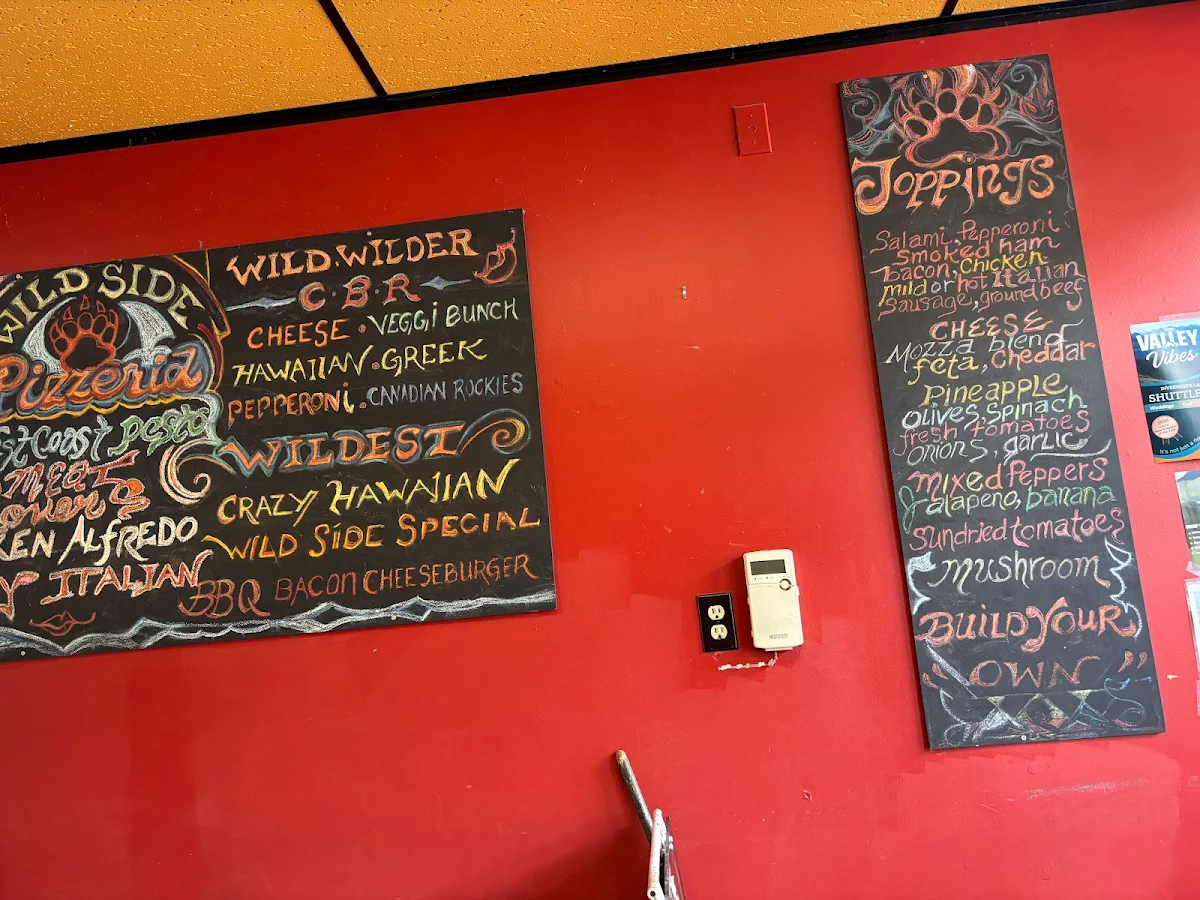 WILD SIDE
Pizzeria
Coast Pesto
MEAT
ALFREDO
ITALIAN
WILD. WILDER
C.B.R
CHEESE . VEGGi BUNCH
HAWAIIAN . GREEK
PEPPERONi . CANADIAN ROCKIES
WILDEST
CRAZY HAWAIIAN
WILD SiDE SPECIAL
BBQ BACON CHEESEBURGER
TOPPiNGS
Salami, Pepperoni
Smoked ham
bacon, chicken
mild or hot Italian
Sausage, ground beef
CHEESE
Mozza blend
feta, cheddar
Pineapple
olives, spinach
fresh tomatoes
onions, garlic
mixed Peppers
Jalapeno, banana
Sundried tomatoes
mushroom
BUILD YOUR
"OWN"
VALLEY
Vibes
SHUTTLE